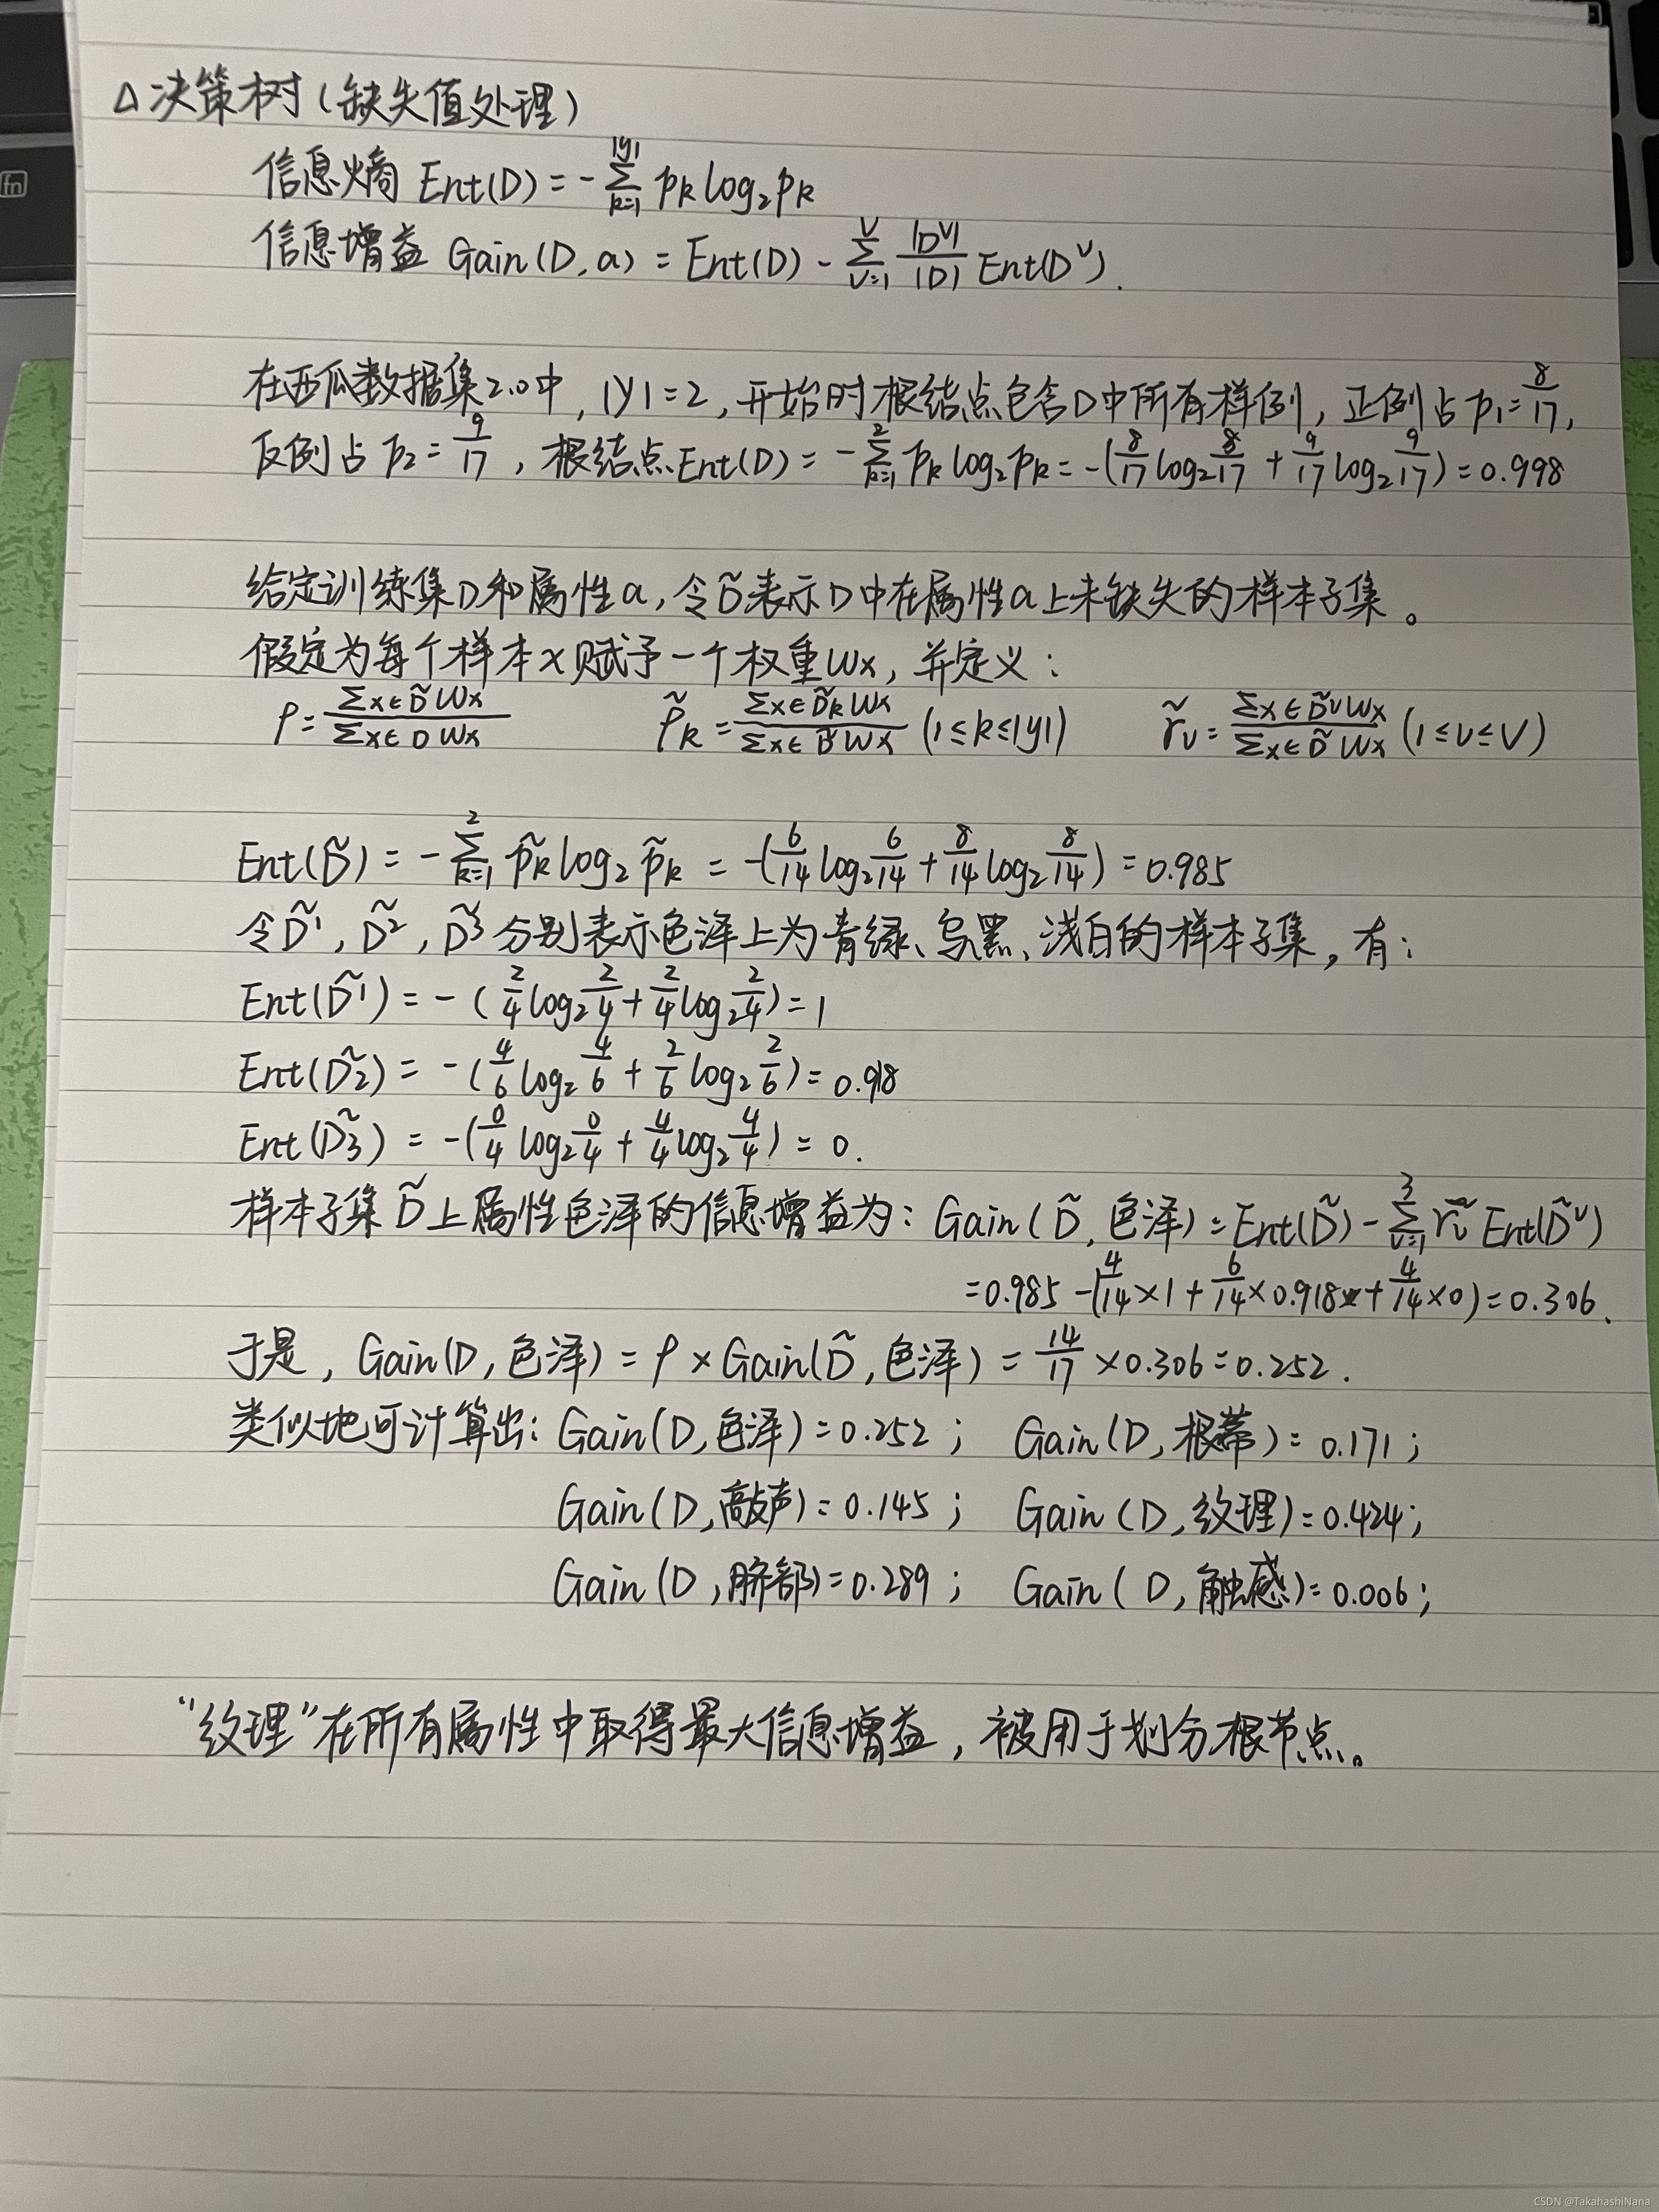 △决策树(缺失值处理)
信息熵 Ent(D) = -∑_{k=1}^{|y|} pk log₂pk
信息增益 Gain(D,a) = Ent(D) - ∑_{v=1}^{V} |D^V|/|D| Ent(D^v).
在西瓜数据集2.0中, |y|=2, 开始时根结点包含D中所有样例, 正例占p₁=8/17,
反例占p₂=9/17, 根结点Ent(D) = -∑_{k=1}^{2} pk log₂pk = -(8/17 log₂ 8/17 + 9/17 log₂ 9/17) = 0.998
给定训练集D和属性a, 令D̃表示D中在属性a上未缺失的样本子集。
假定为每个样本x赋予一个权重Wx, 并定义:
ρ = ∑x∈D̃ Wx / ∑x∈D Wx    p̃k = ∑x∈D̃k Wx / ∑x∈D̃ Wx (1≤k≤|y|)    r̃v = ∑x∈D̃v Wx / ∑x∈D̃ Wx (1≤v≤V)
Ent(D̃) = -∑_{k=1}^{2} p̃k log₂ p̃k = -(6/14 log₂ 6/14 + 8/14 log₂ 8/14) = 0.985
令D̃¹, D̃², D̃³分别表示色泽上为青绿、乌黑、浅白的样本子集, 有:
Ent(D̃¹) = -(2/4 log₂ 2/4 + 2/4 log₂ 2/4) = 1
Ent(D̃2) = -(4/6 log₂ 4/6 + 2/6 log₂ 2/6) = 0.918
Ent(D̃3) = -(0/4 log₂ 0/4 + 4/4 log₂ 4/4) = 0.
样本子集D̃上属性色泽的信息增益为: Gain(D̃,色泽) = Ent(D̃) - ∑_{v=1}^{3} r̃v Ent(D̃^v)
= 0.985 - (4/14×1 + 6/14×0.918 + 4/14×0) = 0.306.
于是, Gain(D,色泽) = ρ × Gain(D̃,色泽) = 14/17 × 0.306 = 0.252.
类似地可计算出: Gain(D,色泽) = 0.252; Gain(D,根蒂) = 0.171;
Gain(D,敲声) = 0.145; Gain(D,纹理) = 0.424;
Gain(D,脐部) = 0.289; Gain(D,触感) = 0.006;
“纹理”在所有属性中取得最大信息增益, 被用于划分根节点。
fn
CSDN @TakahashiNana